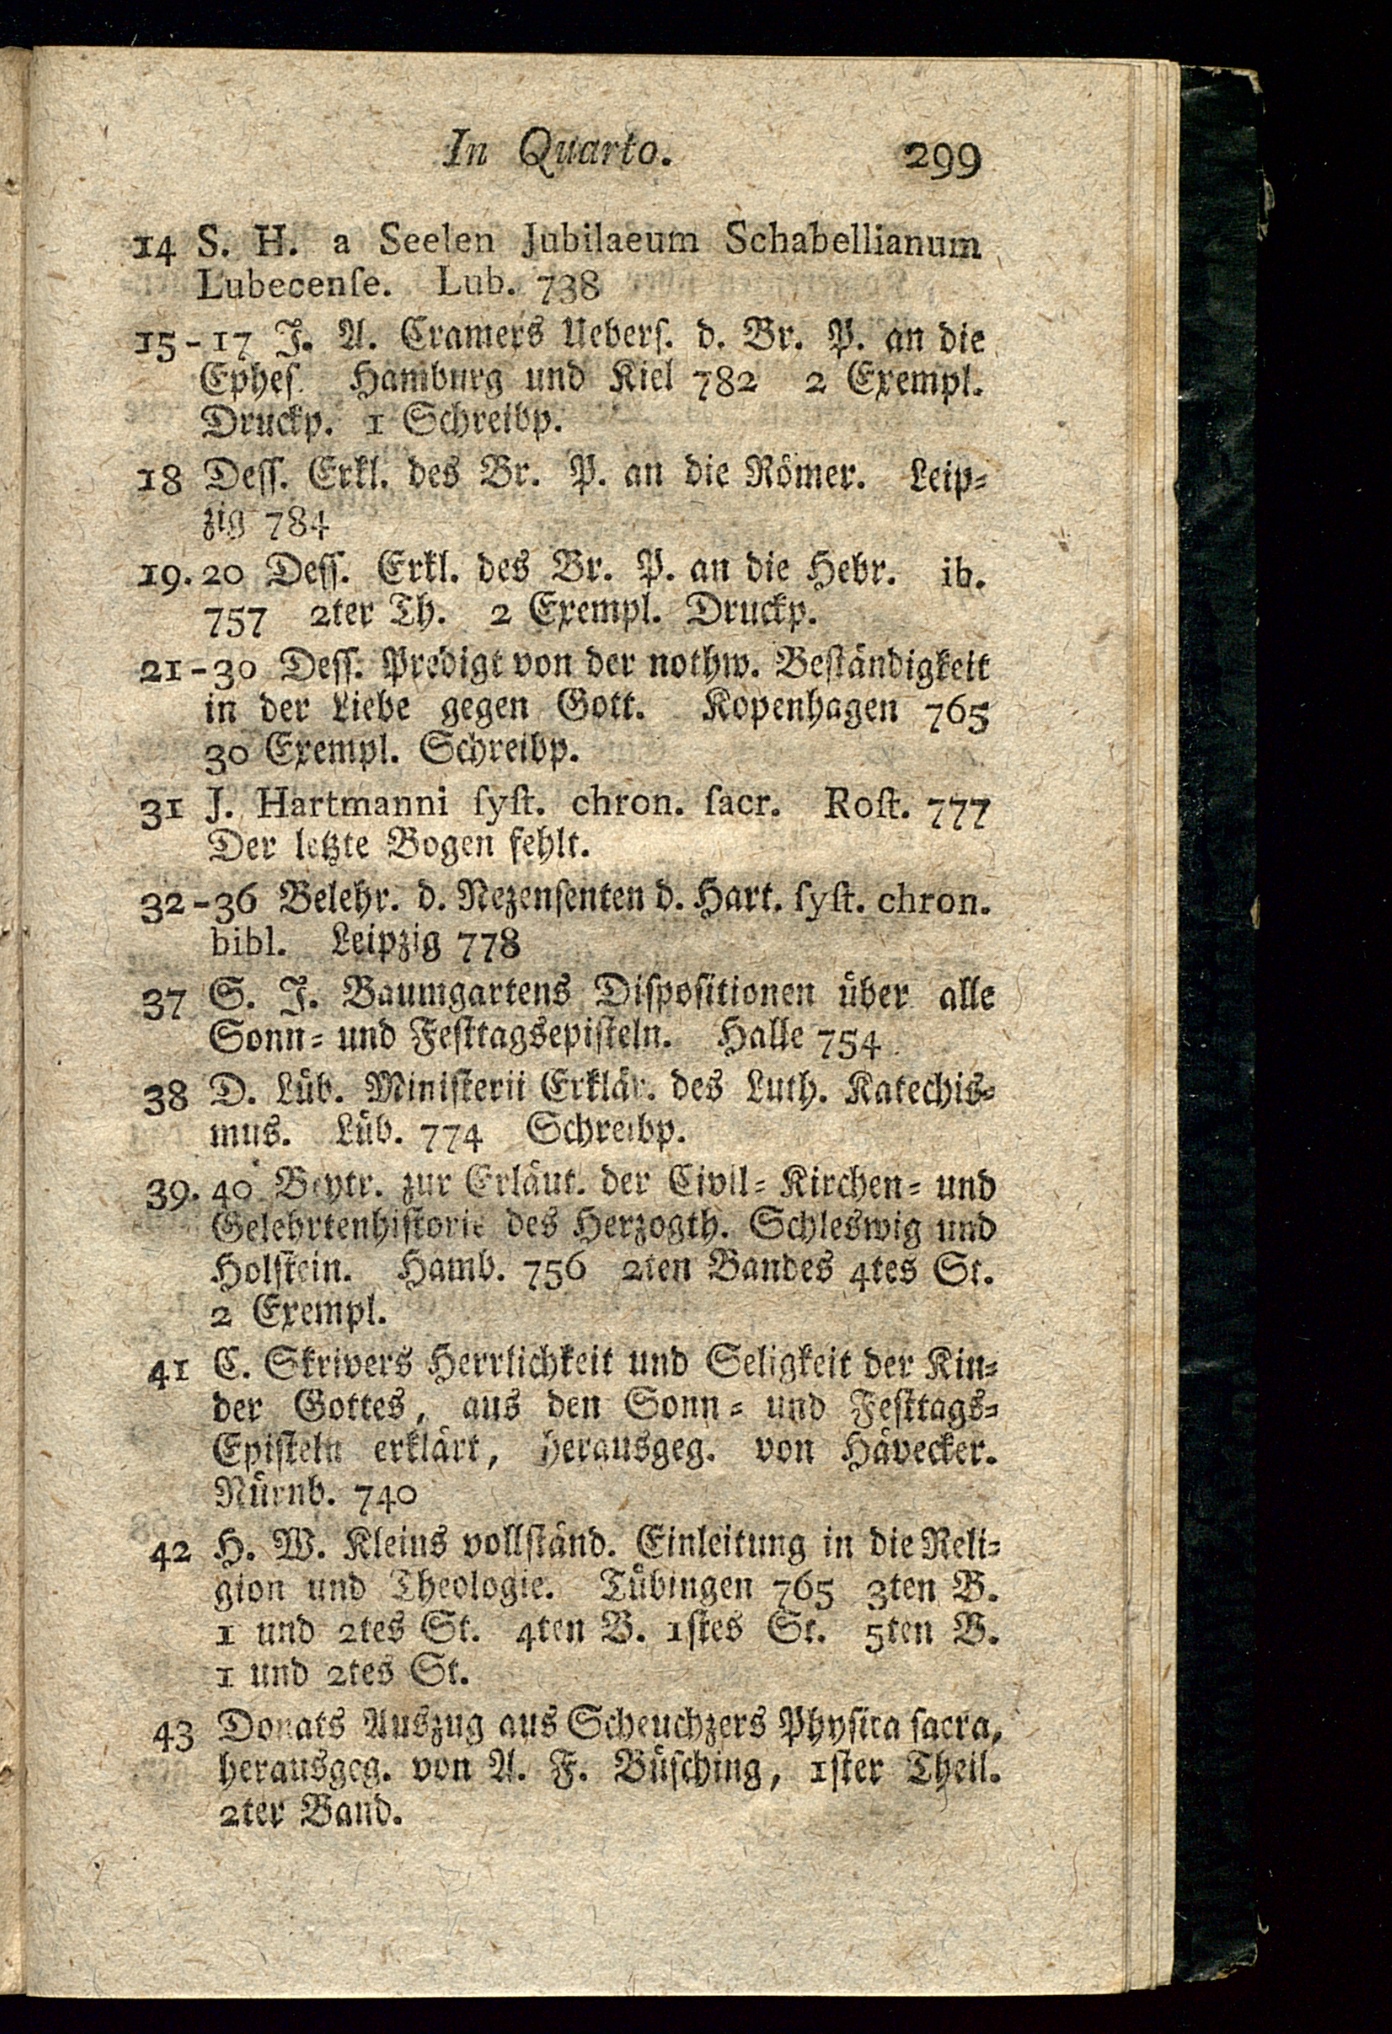 In Quarto. 299
14 S. H. a Seelen Jubilaeum Schabellianum
Lubecenſe. Lub. 738
15-17 J. A. Cramers Ueberſ. d. Br. P. an die
Epheſ. Hamburg und Kiel 782 2 Exempl.
Druckp. 1 Schreibp.
18 Deſſ. Erkl. des Br. P. an die Römer. Leip-
zig 784
19. 20 Deſſ. Erkl. des Br. P. an die Hebr. ib.
757 2ter Th. 2 Exempl. Druckp.
21-30 Deſſ. Predigt von der nothw. Beſtändigkeit
in der Liebe gegen Gott. Kopenhagen 765
30 Exempl. Schreibp.
31 J. Hartmanni ſyſt. chron. ſacr. Roſt. 777
Der letzte Bogen fehlt.
32-36 Belehr. d. Rezenſenten d. Hart. ſyſt. chron.
bibl. Leipzig 778
37 S. J. Baumgartens Diſpoſitionen über alle
Sonn- und Feſttagsepiſteln. Halle 754
38 D. Lüb. Miniſterii Erklär. des Luth. Katechis-
mus. Lüb. 774 Schreibp.
39. 40 Beytr. zur Erläut. der Civil- Kirchen- und
Gelehrtenhiſtorie des Herzogth. Schleswig und
Holſtein. Hamb. 756 2ten Bandes 4tes St.
2 Exempl.
41 C. Skrivers Herrlichkeit und Seligkeit der Kin-
der Gottes, aus den Sonn- und Feſttags-
Epiſteln erklärt, herausgeg. von Hävecker.
Nürnb. 740
42 H. W. Kleins vollſtänd. Einleitung in die Reli-
gion und Theologie. Tübingen 765 3ten B.
1 und 2tes St. 4ten B. 1ſtes St. 5ten B.
1 und 2tes St.
43 Donats Auszug aus Scheuchzers Phyſica ſacra,
herausgeg. von A. F. Büſching, 1ſter Theil.
2ter Band.